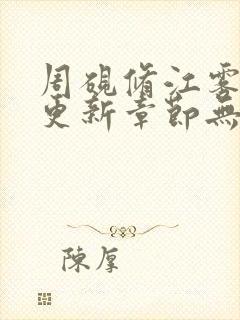 周硯脩江雾
更新章節無
陳厚